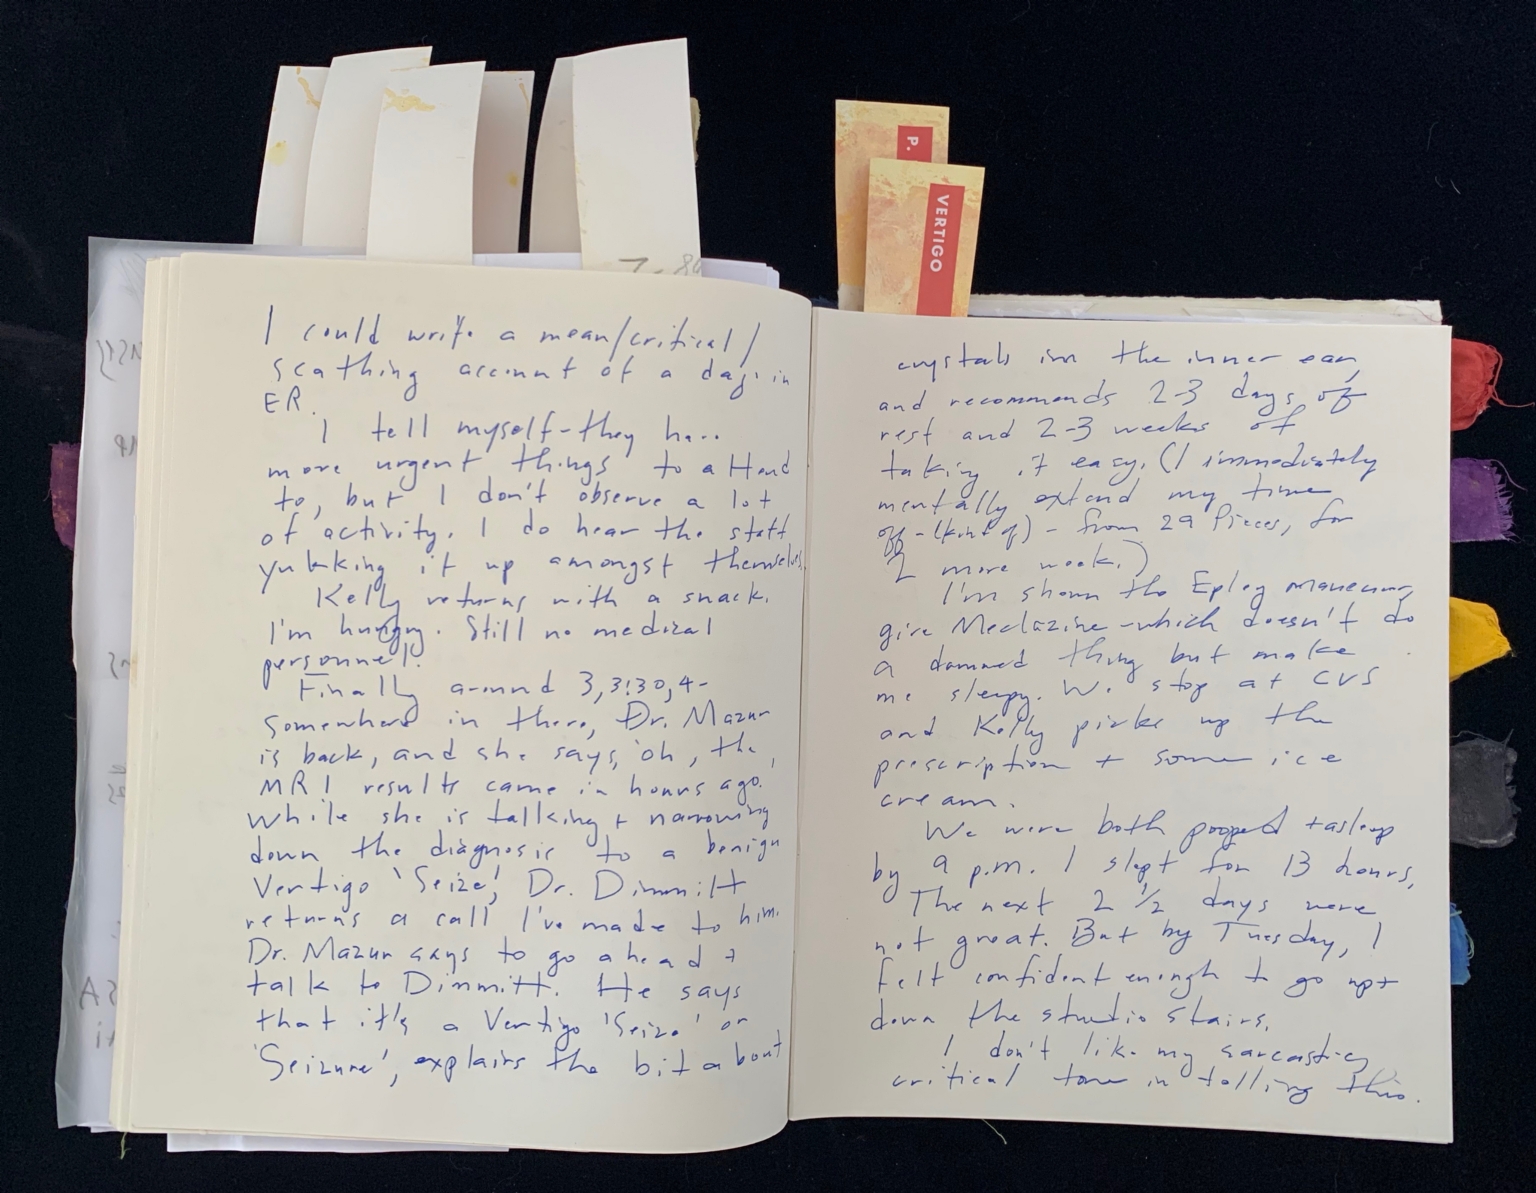 P.
VERTIGO
I could write a mean/critical/
scathing account of a day in
ER.
I tell myself-they have
more urgent things to attend
to, but I don't observe a lot
of activity. I do hear the staff
yukking it up amongst themselves.
Kelly returns with a snack.
I'm hungry. Still no medical
personnel.
Finally around 3, 3:30, 4-
somewhere in there, Dr. Mazur
is back, and she says, 'oh, the
MRI results came in hours ago.'
While she is talking + narrowing
down the diagnosis to a benign
Vertigo 'Seize', Dr. Dimmitt
returns a call I've made to him.
Dr. Mazur says to go ahead +
talk to Dimmitt. He says
that it's a Vertigo 'Seize' or
'Seizure', explains the bit about
crystals in the inner ear,
and recommends 2-3 days of
rest and 2-3 weeks of
taking it easy. (I immediately
mentally extend my time
off-(kind of)- from 29 Pieces, for
2 more week.)
I'm shown the Epley maneuver,
give Meclazine-which doesn't do
a damned thing but make
me sleepy. We stop at CVS
and Kelly picks up the
prescription + some ice
cream.
We were both pooped + asleep
by 9 p.m. I slept for 13 hours.
The next 2 1/2 days were
not great. But by Tuesday, I
felt confident enough to go up +
down the studio stairs.
I don't like my sarcastic,
critical tone in telling this.